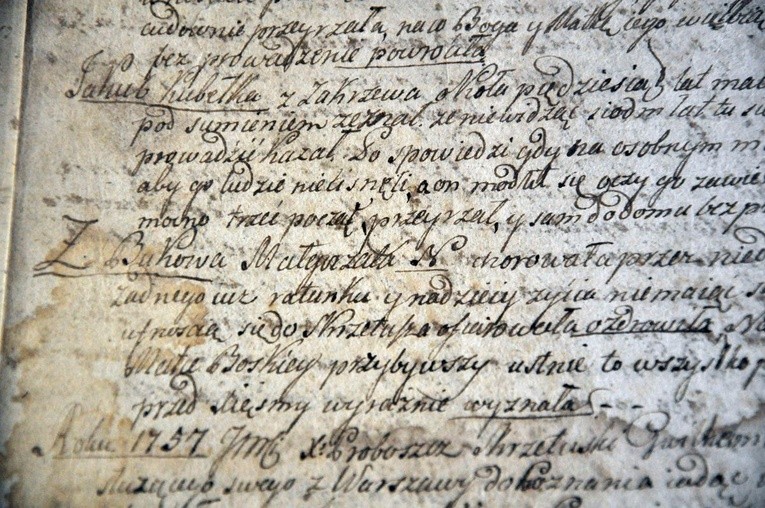 cudownie przeyrzała, na w Boga y Matkę iego
bez prowadzenie powrociła
Jakub Kubełka z Zakrzewa około pięćdziesiąt lat
pod sumieniem zeznał, ze niewidząc siodm lat tu
prowadzić kazał. Do spowiedzi gdy na osobnym
aby go ludzie niecisnęli, a on modlił się oczy go
mocno trzeć począł, przeyrzał, y sam do domu bez
Z Bukowa Małgorzata N chorowała przez
Zadnego iuz ratunku y nadzieię zycia niemaiąc
ufnoscią się do Skrzetusza ofiarowała ozdrowiła,
Matce Boskiey przybywszy ustnie to wszystko
przed wyraznie wyznała. - -
Roku 1757 Jmć x. Proboszcz Skrzetuski
słuzącego swego z Warszawy do Poznania iadąc